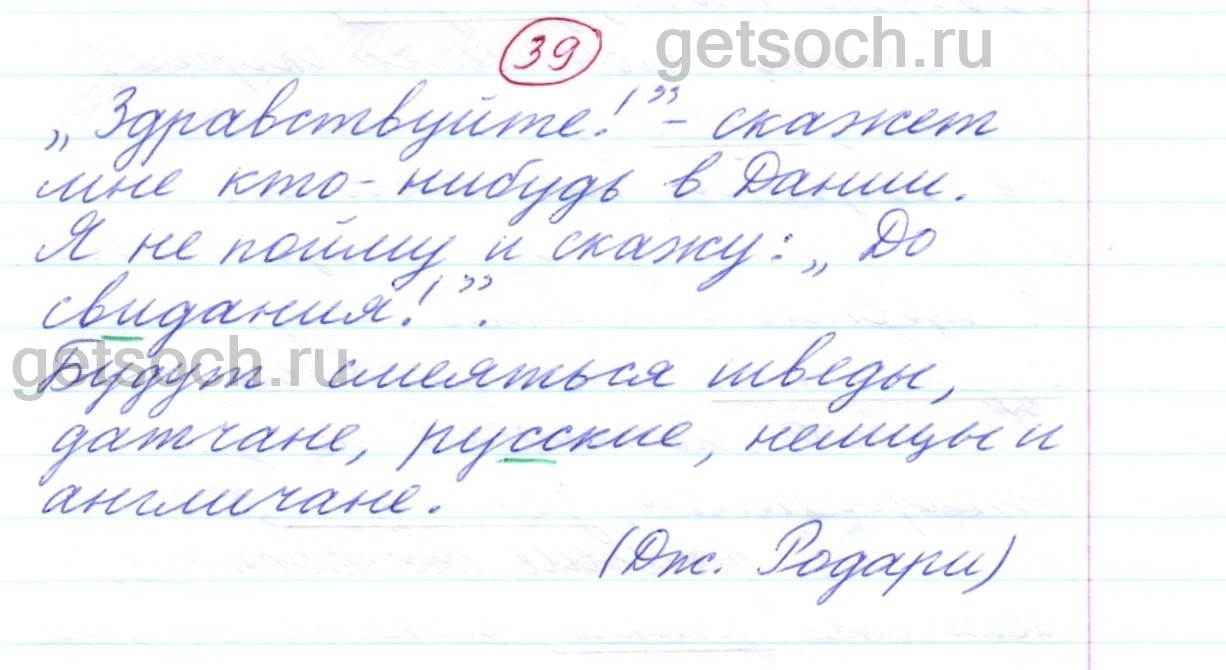 39
getsoch.ru
„Здравствуйте!” - скажет
мне кто-нибудь в Дании.
Я не пойму и скажу: „До
свидания!”.
getsoch.ru
Будут смеяться шведы,
датчане, русские, немцы и
англичане.
(Дж. Родари)